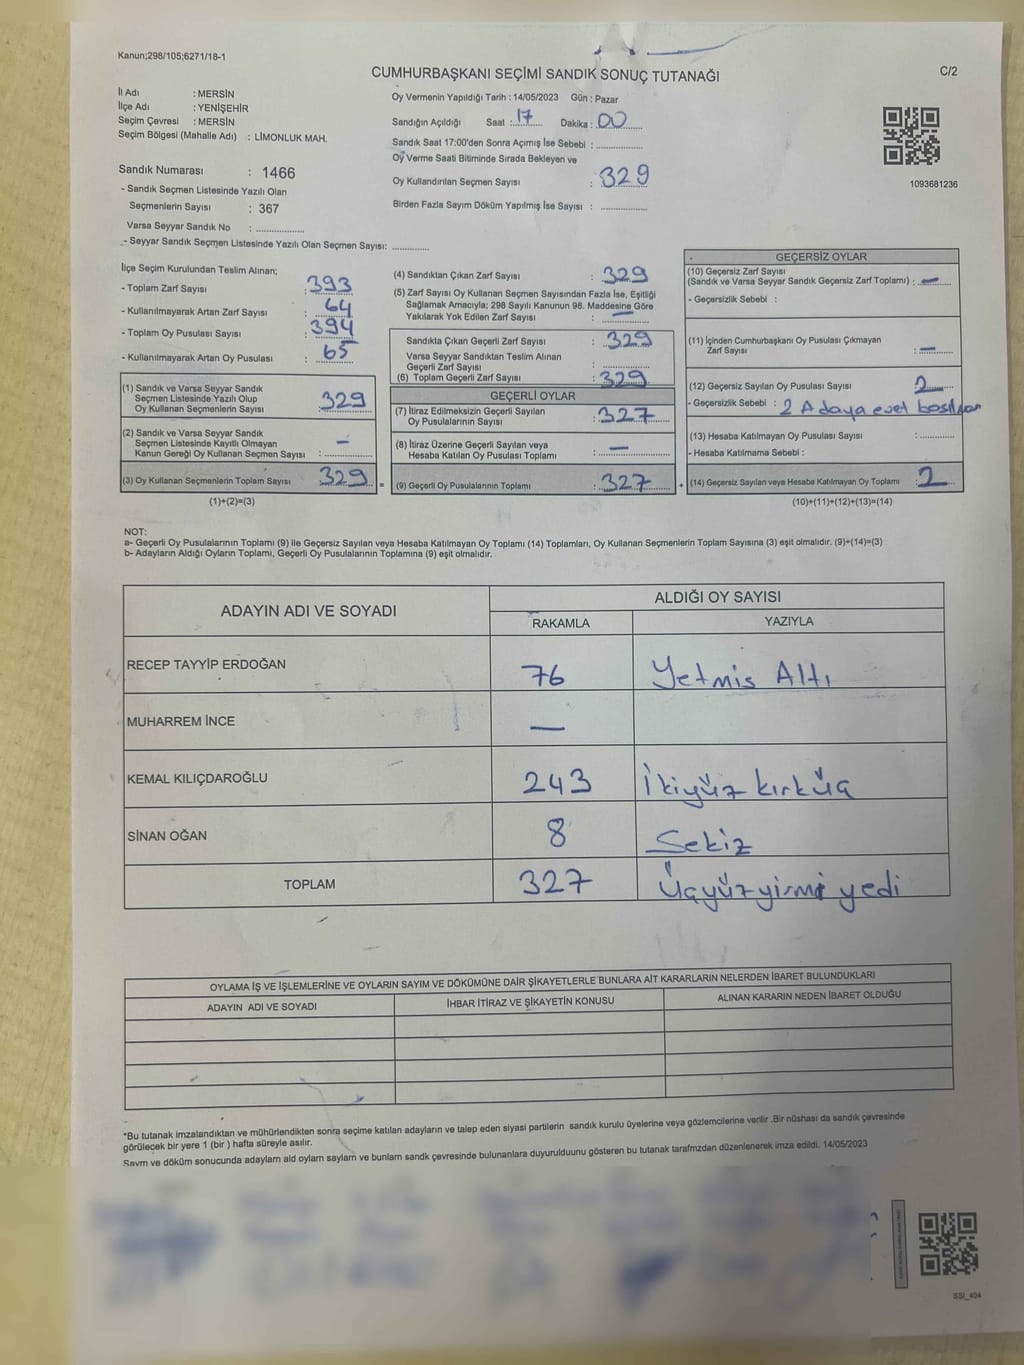 Kanun;298/105;6271/18-1
CUMHURBAŞKANI SEÇİMİ SANDIK SONUÇ TUTANAĞI
C/2
İl Adı : MERSİN
İlçe Adı : YENİŞEHİR
Seçim Çevresi : MERSİN
Seçim Bölgesi (Mahalle Adı) : LİMONLUK MAH.
Sandık Numarası : 1466
- Sandık Seçmen Listesinde Yazılı Olan
Seçmenlerin Sayısı : 367
Varsa Seyyar Sandık No : ..............
- Seyyar Sandık Seçmen Listesinde Yazılı Olan Seçmen Sayısı: ............
Oy Vermenin Yapıldığı Tarih : 14/05/2023 Gün : Pazar
Sandığın Açıldığı Saat : 17 Dakika : 00
Sandık Saat 17:00'den Sonra Açımış İse Sebebi : ..............
Oy Verme Saati Bitiminde Sırada Bekleyen ve
Oy Kullandırılan Seçmen Sayısı : 329
Birden Fazla Sayım Döküm Yapılmış İse Sayısı : ..............
1093681236
İlçe Seçim Kurulundan Teslim Alınan;
- Toplam Zarf Sayısı : 393
- Kullanılmayarak Artan Zarf Sayısı : 64
- Toplam Oy Pusulası Sayısı : 394
- Kullanılmayarak Artan Oy Pusulası : 65
(1) Sandık ve Varsa Seyyar Sandık
Seçmen Listesinde Yazılı Olup
Oy Kullanan Seçmenlerin Sayısı : 329
(2) Sandık ve Varsa Seyyar Sandık
Seçmen Listesinde Kayıtlı Olmayan
Kanun Gereği Oy Kullanan Seçmen Sayısı : —
(3) Oy Kullanan Seçmenlerin Toplam Sayısı : 329 =
(1)+(2)=(3)
(4) Sandıktan Çıkan Zarf Sayısı : 329
(5) Zarf Sayısı Oy Kullanan Seçmen Sayısından Fazla İse, Eşitliği
Sağlamak Amacıyla; 298 Sayılı Kanunun 98. Maddesine Göre
Yakılarak Yok Edilen Zarf Sayısı : —
Sandıkta Çıkan Geçerli Zarf Sayısı : 329
Varsa Seyyar Sandıktan Teslim Alınan
Geçerli Zarf Sayısı : ..............
(6) Toplam Geçerli Zarf Sayısı : 329
GEÇERLİ OYLAR
(7) İtiraz Edilmeksizin Geçerli Sayılan
Oy Pusulalarının Sayısı : 327
(8) İtiraz Üzerine Geçerli Sayılan veya
Hesaba Katılan Oy Pusulası Toplamı : —
(9) Geçerli Oy Pusulalarının Toplamı : 327 +
GEÇERSİZ OYLAR
(10) Geçersiz Zarf Sayısı
(Sandık ve Varsa Seyyar Sandık Geçersiz Zarf Toplamı) : —
- Geçersizlik Sebebi :
(11) İçinden Cumhurbaşkanı Oy Pusulası Çıkmayan
Zarf Sayısı : —
(12) Geçersiz Sayılan Oy Pusulası Sayısı : 2
- Geçersizlik Sebebi : 2 Adaya evet basılan
(13) Hesaba Katılmayan Oy Pusulası Sayısı : ............
- Hesaba Katılmama Sebebi :
(14) Geçersiz Sayılan veya Hesaba Katılmayan Oy Toplamı : 2
(10)+(11)+(12)+(13)=(14)
NOT:
a- Geçerli Oy Pusulalarının Toplamı (9) ile Geçersiz Sayılan veya Hesaba Katılmayan Oy Toplamı (14) Toplamları, Oy Kullanan Seçmenlerin Toplam Sayısına (3) eşit olmalıdır. (9)+(14)=(3)
b- Adayların Aldığı Oyların Toplamı, Geçerli Oy Pusulalarının Toplamına (9) eşit olmalıdır.
ADAYIN ADI VE SOYADI
ALDIĞI OY SAYISI
RAKAMLA YAZIYLA
RECEP TAYYİP ERDOĞAN 76 Yetmis Altı
MUHARREM İNCE —
KEMAL KILIÇDAROĞLU 243 İkiyüz kırküç
SİNAN OĞAN 8 Sekiz
TOPLAM 327 Üçyüzyirmi yedi
OYLAMA İŞ VE İŞLEMLERİNE VE OYLARIN SAYIM VE DÖKÜMÜNE DAİR ŞİKAYETLERLE BUNLARA AİT KARARLARIN NELERDEN İBARET BULUNDUKLARI
ADAYIN ADI VE SOYADI İHBAR İTİRAZ VE ŞİKAYETİN KONUSU ALINAN KARARIN NEDEN İBARET OLDUĞU
*Bu tutanak imzalandıktan ve mühürlendikten sonra seçime katılan adayların ve talep eden siyasi partilerin sandık kurulu üyelerine veya gözlemcilerine verilir .Bir nüshası da sandık çevresinde
görülecek bir yere 1 (bir ) hafta süreyle asılır.
Sayım ve döküm sonucunda adaylarn ald oylarn saylarn ve bunlarn sandk çevresinde bulunanlara duyurulduunu gösteren bu tutanak tarafmzdan düzenlenerek imza edildi. 14/05/2023
SSI_404